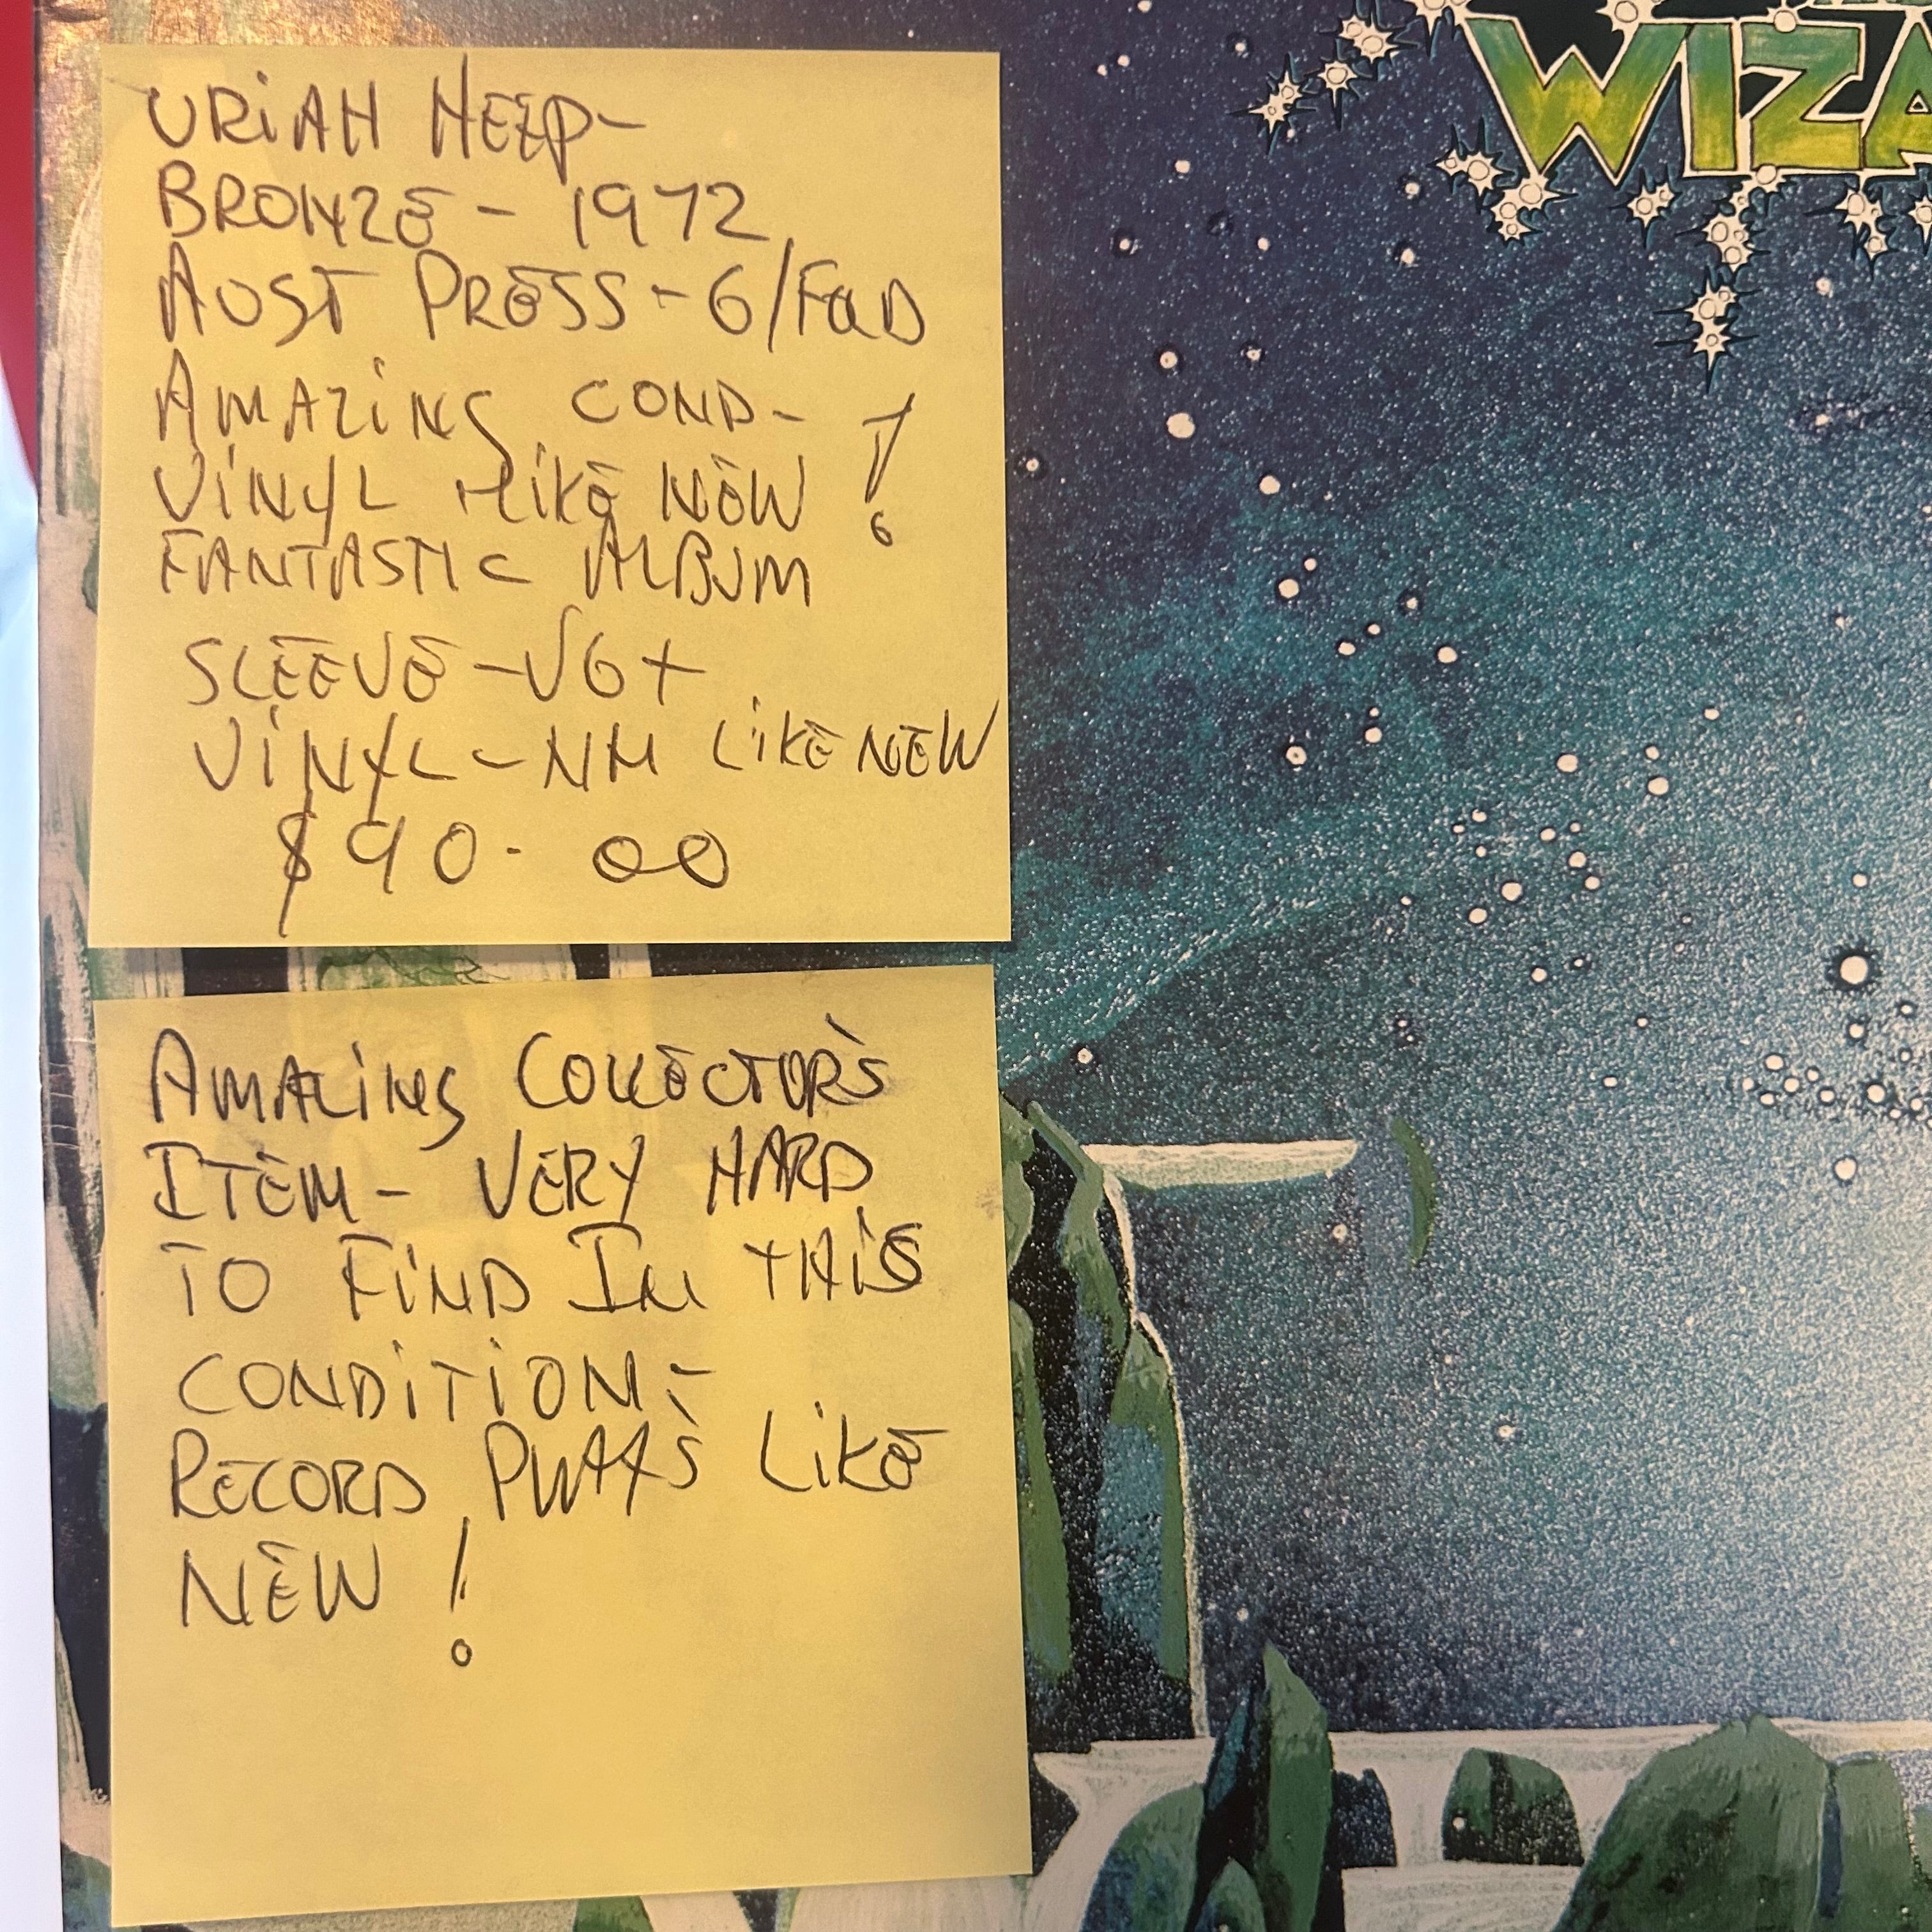 URIAH HEEP-
BRONZE - 1972
AUST PRESS - G/FOLD
AMAZING COND-
VINYL LIKE NEW !
FANTASTIC ALBUM
SLEEVE - VG+
VINYL - NM LIKE NEW
$90.00
AMAZING COLLECTOR'S
ITEM - VERY HARD
TO FIND IN THIS
CONDITION -
RECORD PLAYS LIKE
NEW !
WIZA